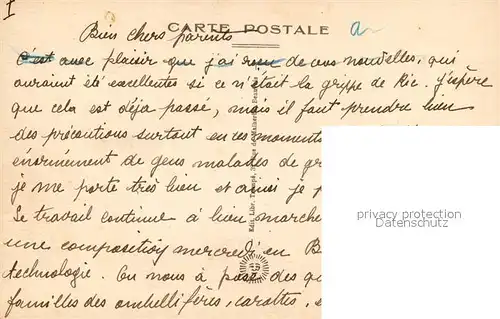 I
CARTE POSTALE
a
Bien chers parents
C'est avec plaisir que j'ai reçu de vos nouvelles, qui
auraient été excellentes si ce n'était la grippe de Ric. J'espère
que cela est déja passé, mais il faut prendre bien
des précautions surtout en ces moments
énormément de gens malades de gr
je me porte très bien et ainsi je p
Le travail continue à bien marche
une composition mercredi en B
technologie. On nous à posé des qu
familles des ombellifères, carottes,
Edit. Libr.
privacy protection
Datenschutz